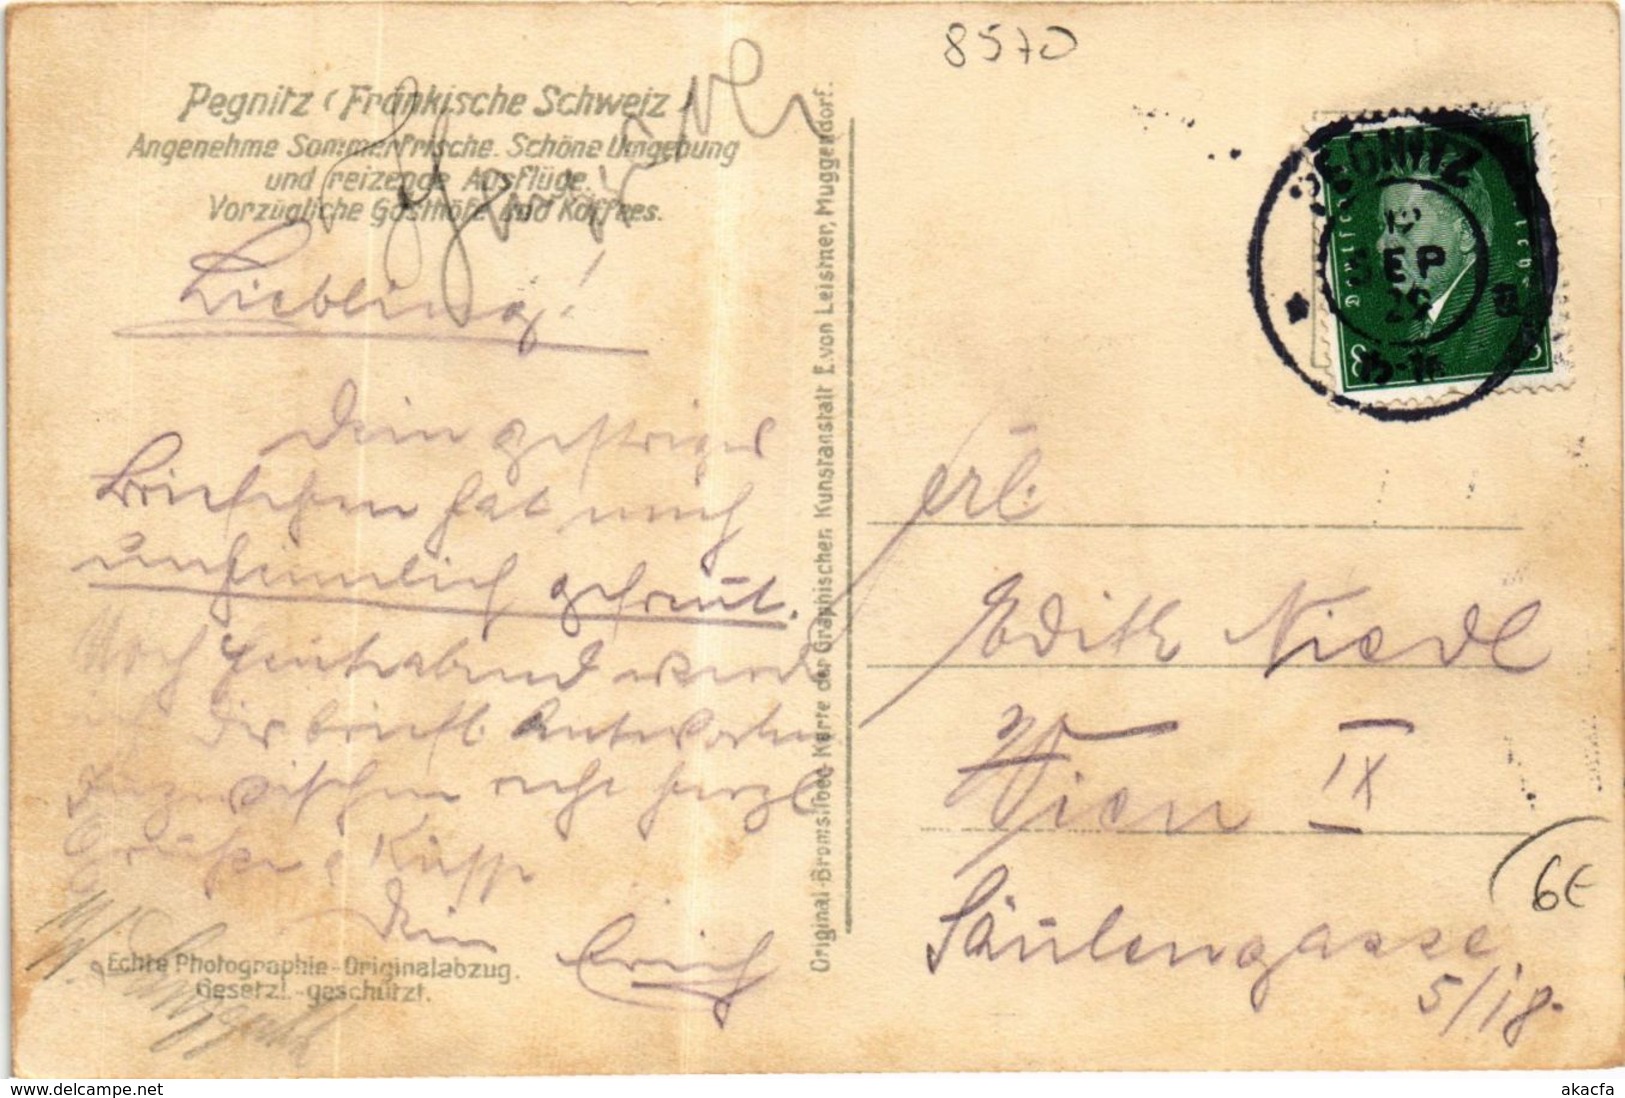 8570
Pegnitz (Fränkische Schweiz)
Angenehme Sommerfrische. Schöne Umgebung
und reizende Ausflüge.
Vorzügliche Gasthöfe und Kaffees.
Liebling!
Dein gestriges
Briefchen hat mich
unheimlich gefreut.
Noch heut abend werde
ich Dir briefl. Antworten
Inzwischen recht herzl.
Grüße & Küsse
Dein Erich
Echte Photographie-Originalabzug.
Gesetzl.-geschützt.
Original-Bromsilber Karte der Graphischen Kunstanstalt E.von Leistner, Muggendorf.
PEGNITZ
SEP
29
Deutsches Reich
8 8
Frl.
Edith Niedl
Wien IX
Säulengasse
5/18.
6€
delcampe.net
akacfa